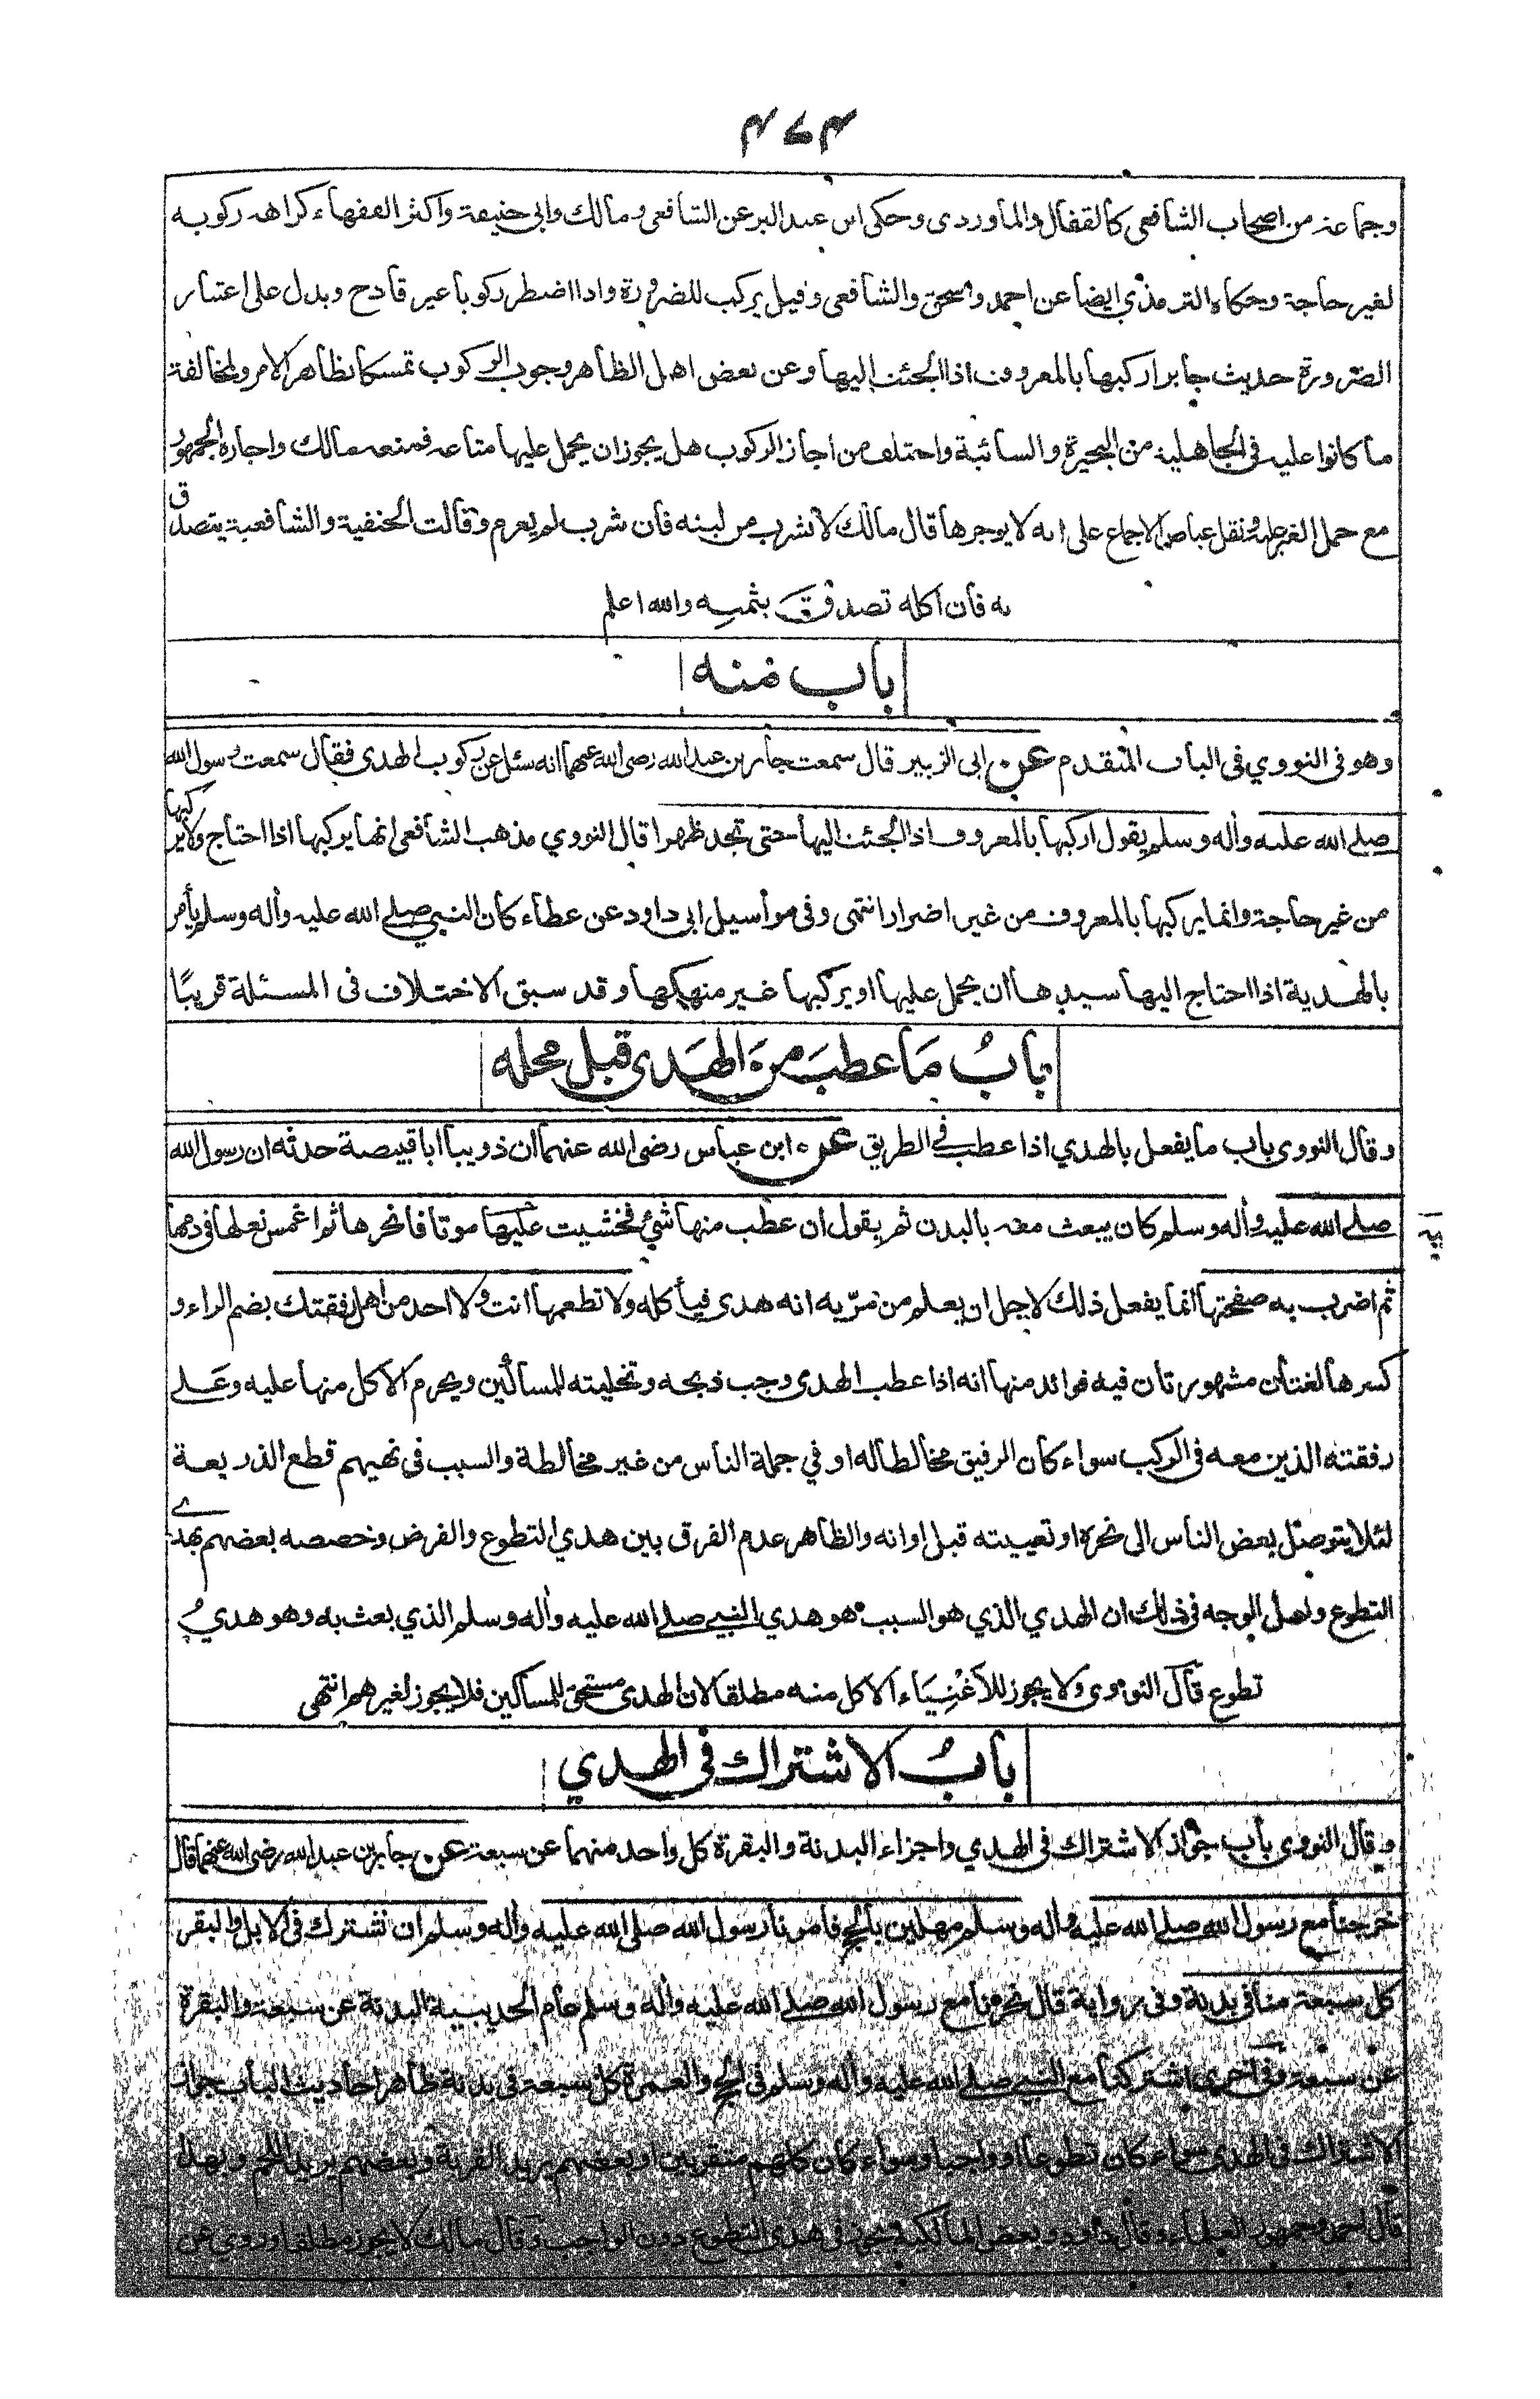 ٤٧٤
وجماعة من اصحاب الشافعي كالقفال والماوردى وحكى ابن عبد البر عن الشافعى ومالك وابى حنيفة واكثر الفقهاء كراهة ركوبه
لغير حاجة وحكاه الترمذي ايضا عن احمد واسحق والشافعى وقيل يركب للضرورة واذا اضطر ركوبا غير قادح ويدل على اعتبار
الضرورة حديث جابر اركبها بالمعروف اذا الجئت اليها وعن بعض اهل الظاهر وجوب الركوب تمسكا بظاهر الامر ولمخالفة
ما كانوا عليه فى الجاهلية من البحيرة والسائبة واختلف من اجاز الركوب هل يجوز ان يحمل عليها متاعه فمنعه مالك واجازه الجمهور
مع حمل الغير عليه ونقل عياض الاجماع على انه لا يوجرها قال مالك لا تشرب من لبنه فان شرب لم يغرم وقالت الحنفية والشافعية يتصدق
به فان اكله تصدق بثمنه والله اعلم
باب منه
وهو فى النووي فى الباب المتقدم عن ابى الزبير قال سمعت جابر بن عبد الله رضى الله عنهما انه سئل عن ركوب الهدى فقال سمعت رسول الله
صلى الله عليه واله وسلم يقول اركبها بالمعروف اذا الجئت اليها حتى تجد ظهرا قال النووي مذهب الشافعى انها يركبها اذا احتاج ولا يركبها
من غير حاجة وانما يركبها بالمعروف من غير اضرار انتهى وفى مراسيل ابى داود عن عطاء كان النبي صلى الله عليه واله وسلم يأمر
بالهدية اذا احتاج اليها سيدها ان يحمل عليها او يركبها غير منهكها وقد سبق الاختلاف فى المسئلة قريبًا
بابُ مَا عطبَ مِنَ الهَدى قبل محله
وقال النووى باب ما يفعل بالهدي اذا عطب فى الطريق عن ابن عباس رضى الله عنهما ان ذويبا ابا قبيصة حدثه ان رسول الله
صلى الله عليه واله وسلم كان يبعث معه بالبدن ثم يقول ان عطب منها شئ فخشيت عليها موتا فانحرها ثم اغمس نعلها فى دمها
ثم اضرب به صفحتها انما يفعل ذلك لاجل ان يعلم من مرّ به انه هدى فيأكله ولا تطعمها انت ولا احد من اهل رفقتك بضم الراء و
كسرها لغتان مشهورتان فيه فوائد منها انه اذا عطب الهدى وجب ذبحه وتخليته للمساكين ويحرم الاكل منها عليه وعَلى
رفقته الذين معه فى الركب سواء كان الرفيق مخالطا له او في جملة الناس من غير مخالطة والسبب فى نهيهم قطع الذريعة
لئلا يتوصل بعض الناس الى نحره او تعييبه قبل اوانه والظاهر عدم الفرق بين هدي التطوع والفرض وخصصه بعضهم بهدى
التطوع ولعل الوجه فى ذلك ان الهدي الذي هو السبب هو هدي النبي صلى الله عليه واله وسلم الذي بعث به وهو هديُ
تطوع قال النووى ولا يجوز للأَغْنِيَاء الاكل منه مطلقا لان الهدى مستحق للمساكين فلا يجوز لغيرهم انتهى
بابُ الاشتراك فى الهدي
وقال النووى باب جواز الاشتراك فى الهدي واجزاء البدنة والبقرة كل واحد منهما عن سبعة عن جابر بن عبد الله رضى الله عنهما قال
خرجنا مع رسول الله صلى الله عليه واله وسلم مهلين بالحج فامرنا رسول الله صلى الله عليه واله وسلم ان نشترك فى الابل والبقر
كل سبعة منا فى بدنة وفى رواية قال نحرنا مع رسول الله صلى الله عليه واله وسلم عام الحديبية البدنة عن سبعة والبقرة
عن سبعة وفى اخرى اشتركنا مع النبي صلى الله عليه واله وسلم فى الحج والعمرة كل سبعة فى بدنة ظاهر احاديث الباب جواز
الاشتراك فى الهدى سواء كان تطوعا او واجبا وسواء كان كلهم متقربين او بعضهم يريد القربة وبعضهم يريد اللحم وبهذا
قال احمد وجمهور العلماء وقال داود وبعض المالكية يجوز فى هدى التطوع دون الواجب وقال مالك لا يجوز مطلقا وروى عن